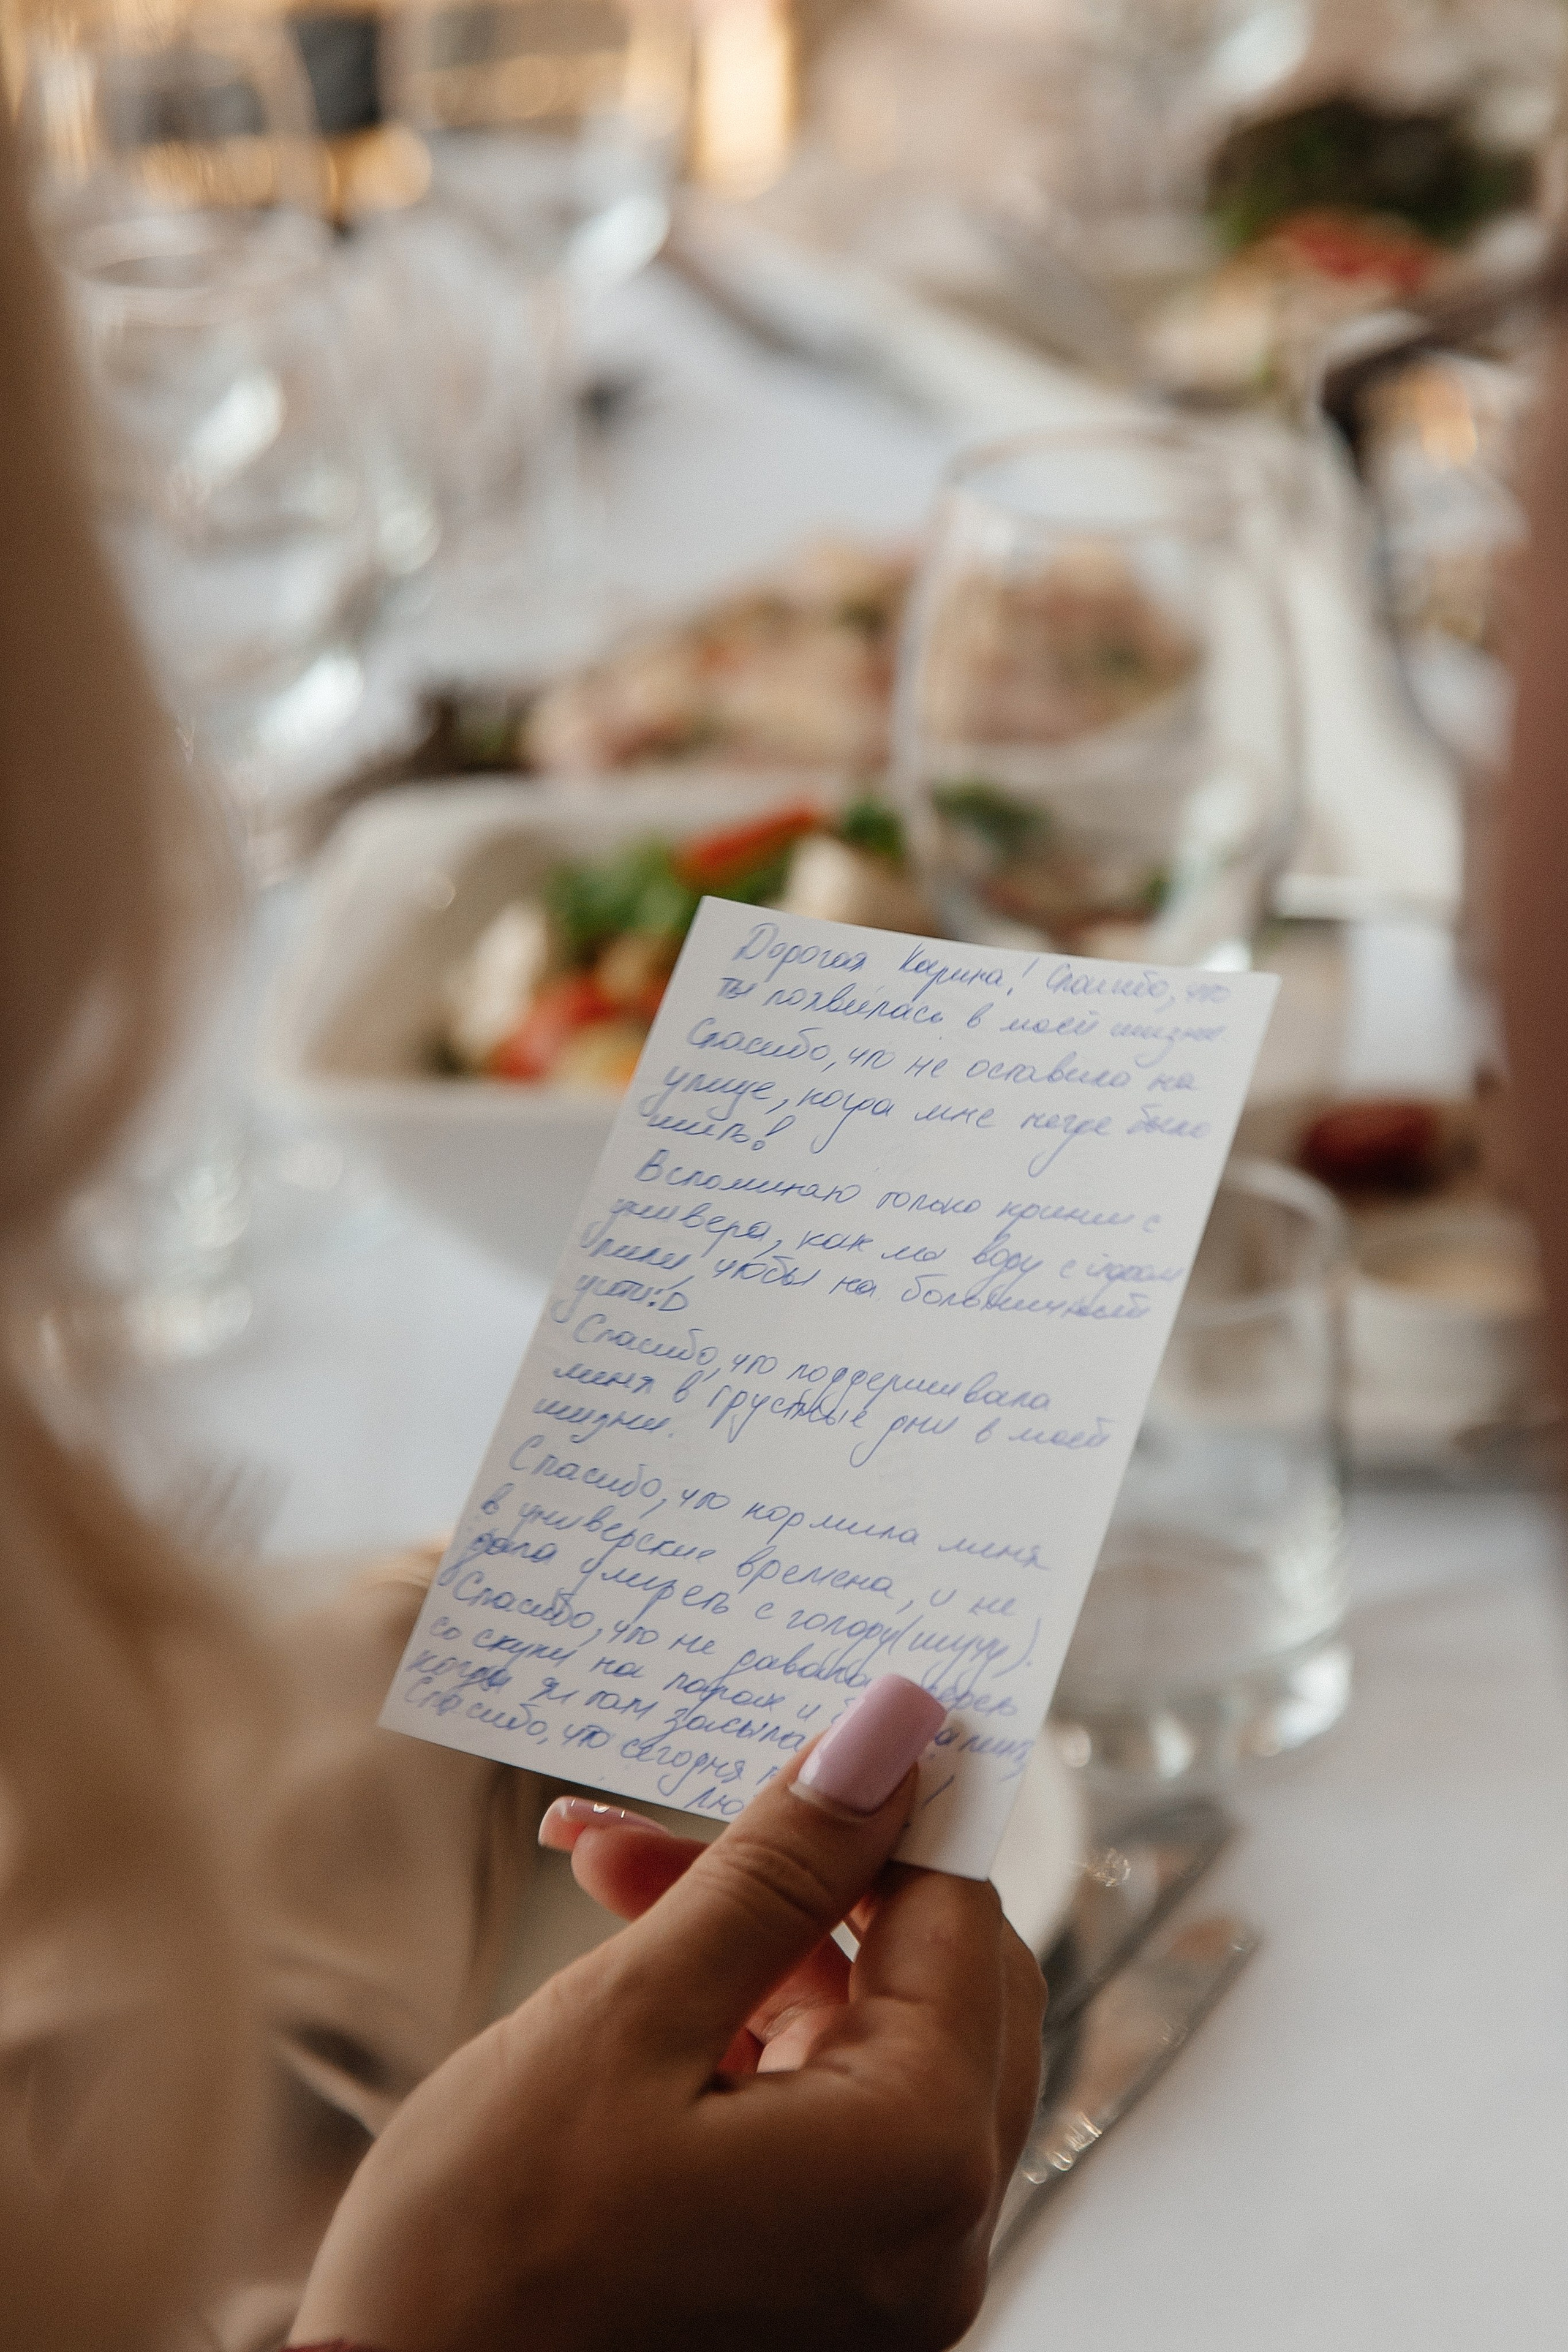 Дорогая Карина! Спасибо, что
ты появилась в моей жизни
Спасибо, что не оставила на
улице, когда мне негде было
жить!
Вспоминаю только кринж с
универа, как мы воду с йодом
пили, чтобы на больничный
уйти:D
Спасибо, что поддерживала
меня в грустные дни в моей
жизни.
Спасибо, что кормила меня
в универские времена, и не
дала умереть с голоду(шучу).
Спасибо, что не давала
со скуки на парах и
когда я там засыпа
Спасибо, что сегодня
лю !